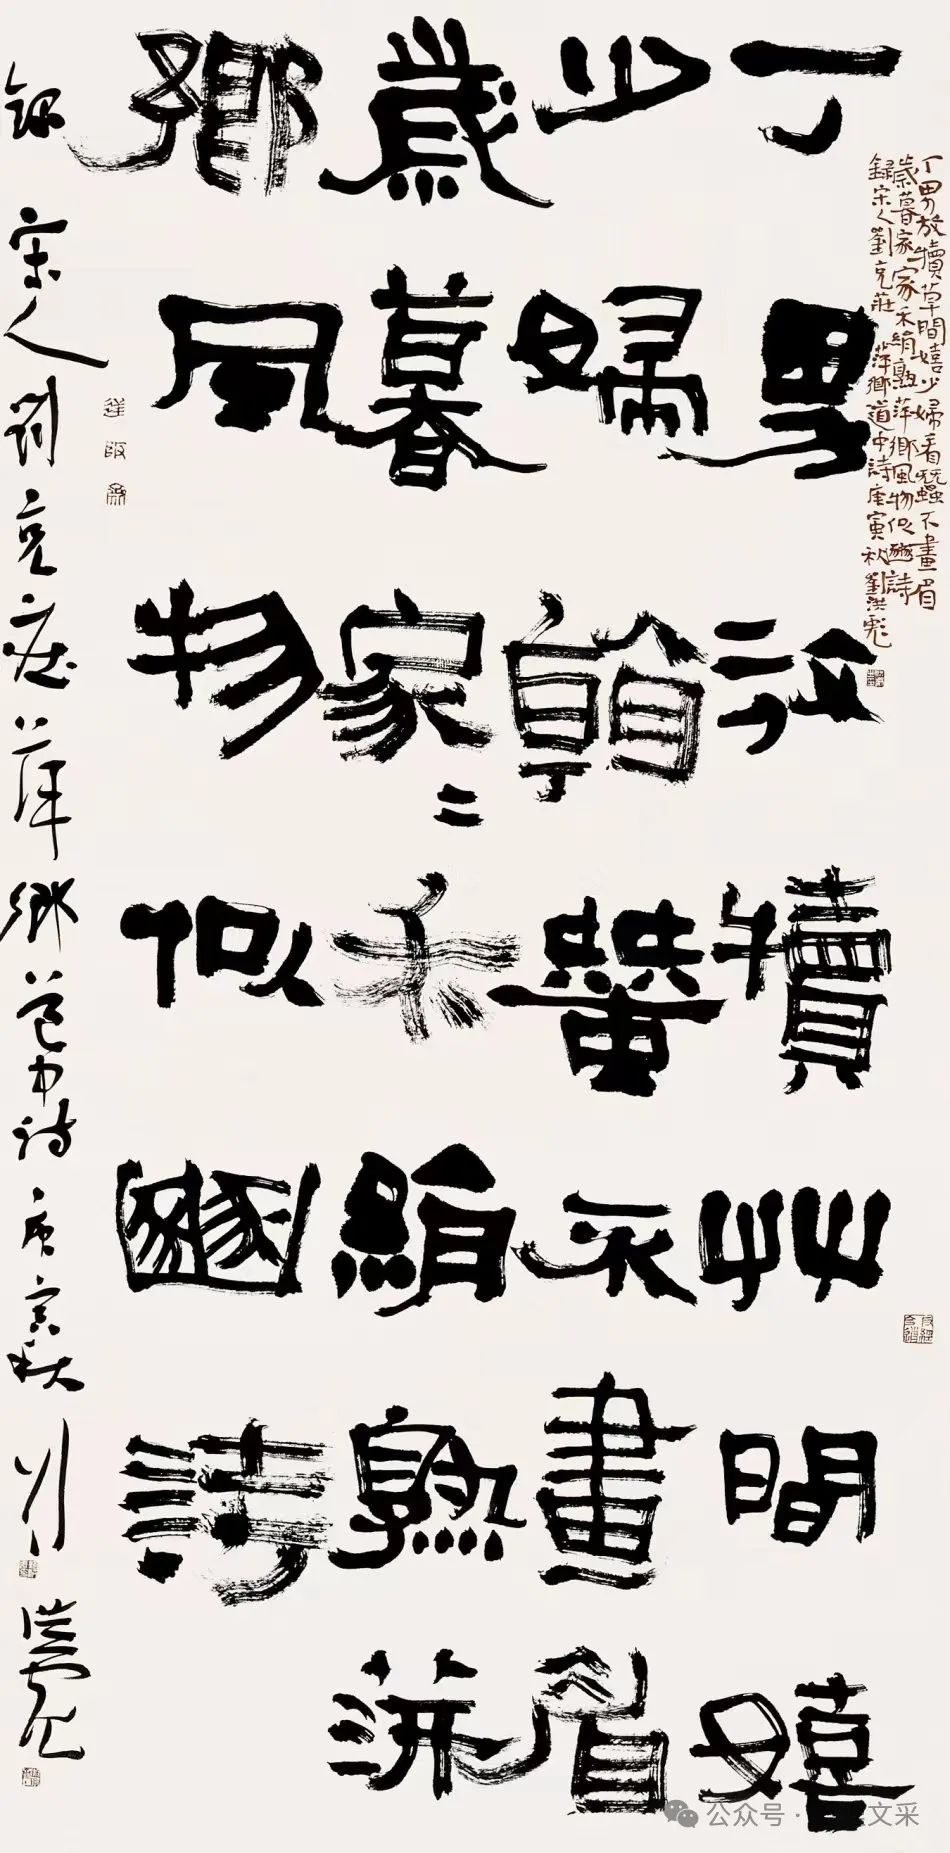 丁男放犢草間嬉少婦看蠶不畫眉
歲暮家家禾絹熟萍鄉風物似豳詩
錄宋人劉克莊萍鄉道中詩庚寅秋劉洪彪
丁男放犢艸間嬉
少婦看蠶不畫眉
歲暮家〻禾絹熟萍
鄉風物似豳詩
錄宋人劉克莊萍鄉道中詩庚寅秋劉洪彪
公众号·文采